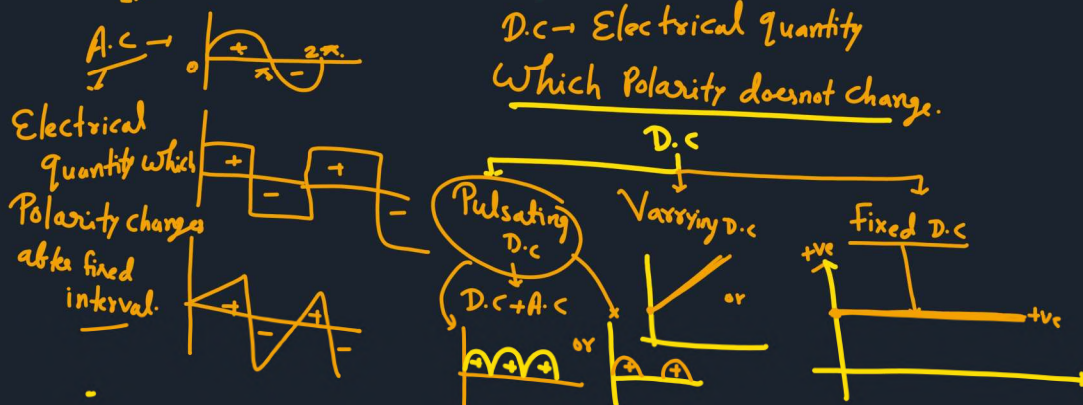 A.C →
+
0
π
-
2π.
Electrical
quantity which
Polarity changes
after fixed
interval.
+
-
+
-
+
-
+
-
D.C → Electrical quantity
Which Polarity doesnot change.
D.C
Pulsating
D.C
D.C + A.C
+ + +
or
+ +
Varrying D.C
or
Fixed D.C
+ve
+ve